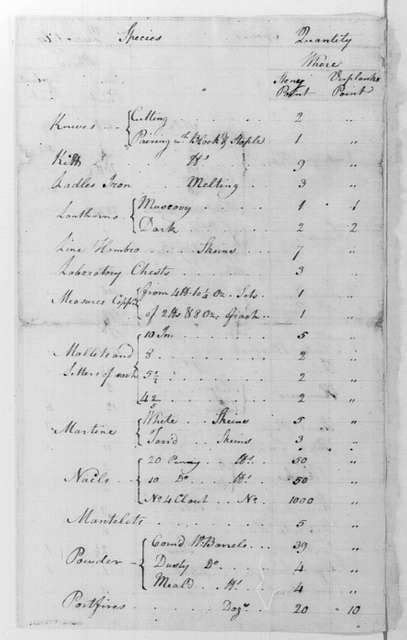 Species Quantity
Where
Stoney Point Verplanks Point
Knives { Cutting . . . . 2 "
Pairing wth. Block & Staple 1 "
Kitt Hs 9 "
Ladles Iron Melting . . 3 "
Lanthorns { Muscovy . . . . 1 1
Dark . . . . 2 2
Line Hambro Skeins . . 7 "
Laboratory Chests . . . . 3 "
Measures Copper { from 4lb to ¼ Oz. Sets . 1 "
of 2lb & 8 Oz, of each . . 1 "
Mallets and Setters of each { 10 In. . . . 5 "
8 . . . . 2 "
5½ . . . . 2 "
4⅖ . . . . 2 "
Marline { White Skeins . . 5 "
Tar'd Skeins . . 3 "
Nails { 20 Penny . . 50 "
10 Do . . 50 "
No. 4 Clout . . No. . 1000 "
Mantelets . . . . 5 "
Powder { Corn'd Wh. Barrels . . . 39 "
Dusty Do . . . . 4 "
Meal'd . . . . 4 "
Portfires . . . Dozn. . . 20 10